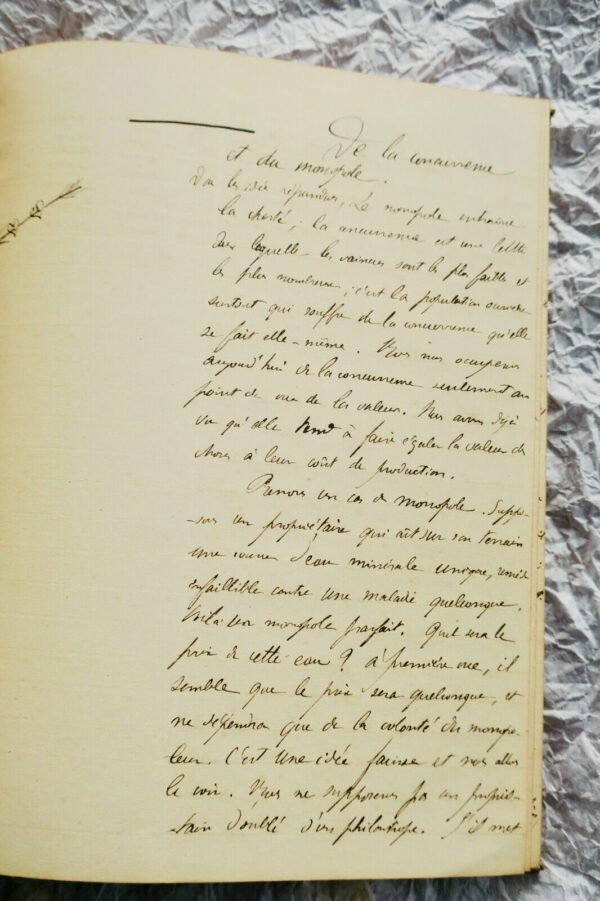 De la concurrence
et du monopole.
Dans les idées répandues, Le monopole entraîne
la cherté ; la concurrence est une lutte
dans laquelle les vaincus sont les plus faibles et
les plus nombreux ; c'est la population ouvrière
surtout qui souffre de la concurrence qu'elle
se fait elle-même. Nous nous occuperons
aujourd'hui de la concurrence seulement au
point de vue de la valeur. Nous avons déjà
vu qu'elle tend à faire égaler la valeur des
choses à leur coût de production.
Prenons un cas de monopole. Suppo-
-sons un propriétaire qui ait sur son terrain
une source d'eau minérale unique, remède
infaillible contre une maladie quelconque.
Voilà un monopole parfait. Quel sera le
prix de cette eau ? à première vue, il
semble que le prix sera quelconque, et
ne dépendra que de la volonté du monopo-
leur. C'est une idée fausse et nous allons
le voir. Nous ne supposerons pas un proprié-
-taire doublé d'un philanthrope. S'il met